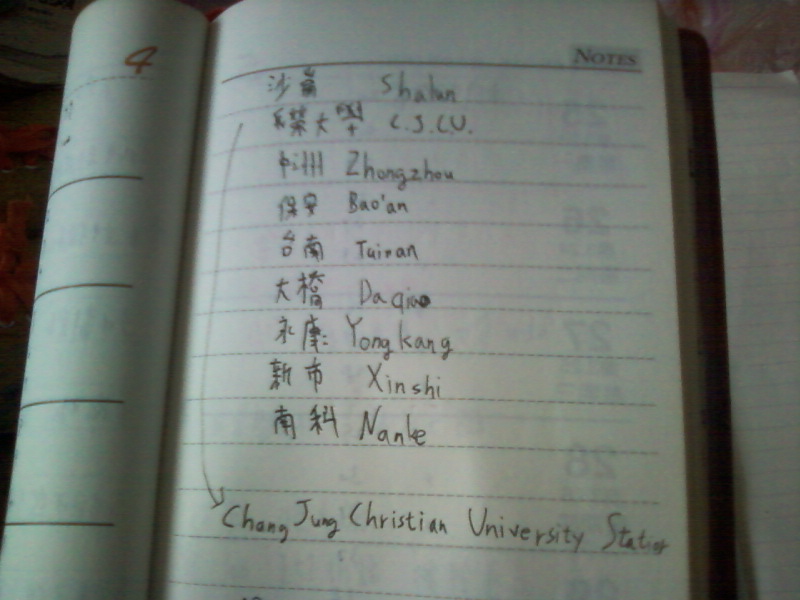 4
NOTES
沙崙 Shalun
長榮大學 C.J.C.U.
中洲 Zhongzhou
保安 Bao'an
台南 Tainan
大橋 Daqiao
永康 Yongkang
新市 Xinshi
南科 Nanke
Chang Jung Christian University Station